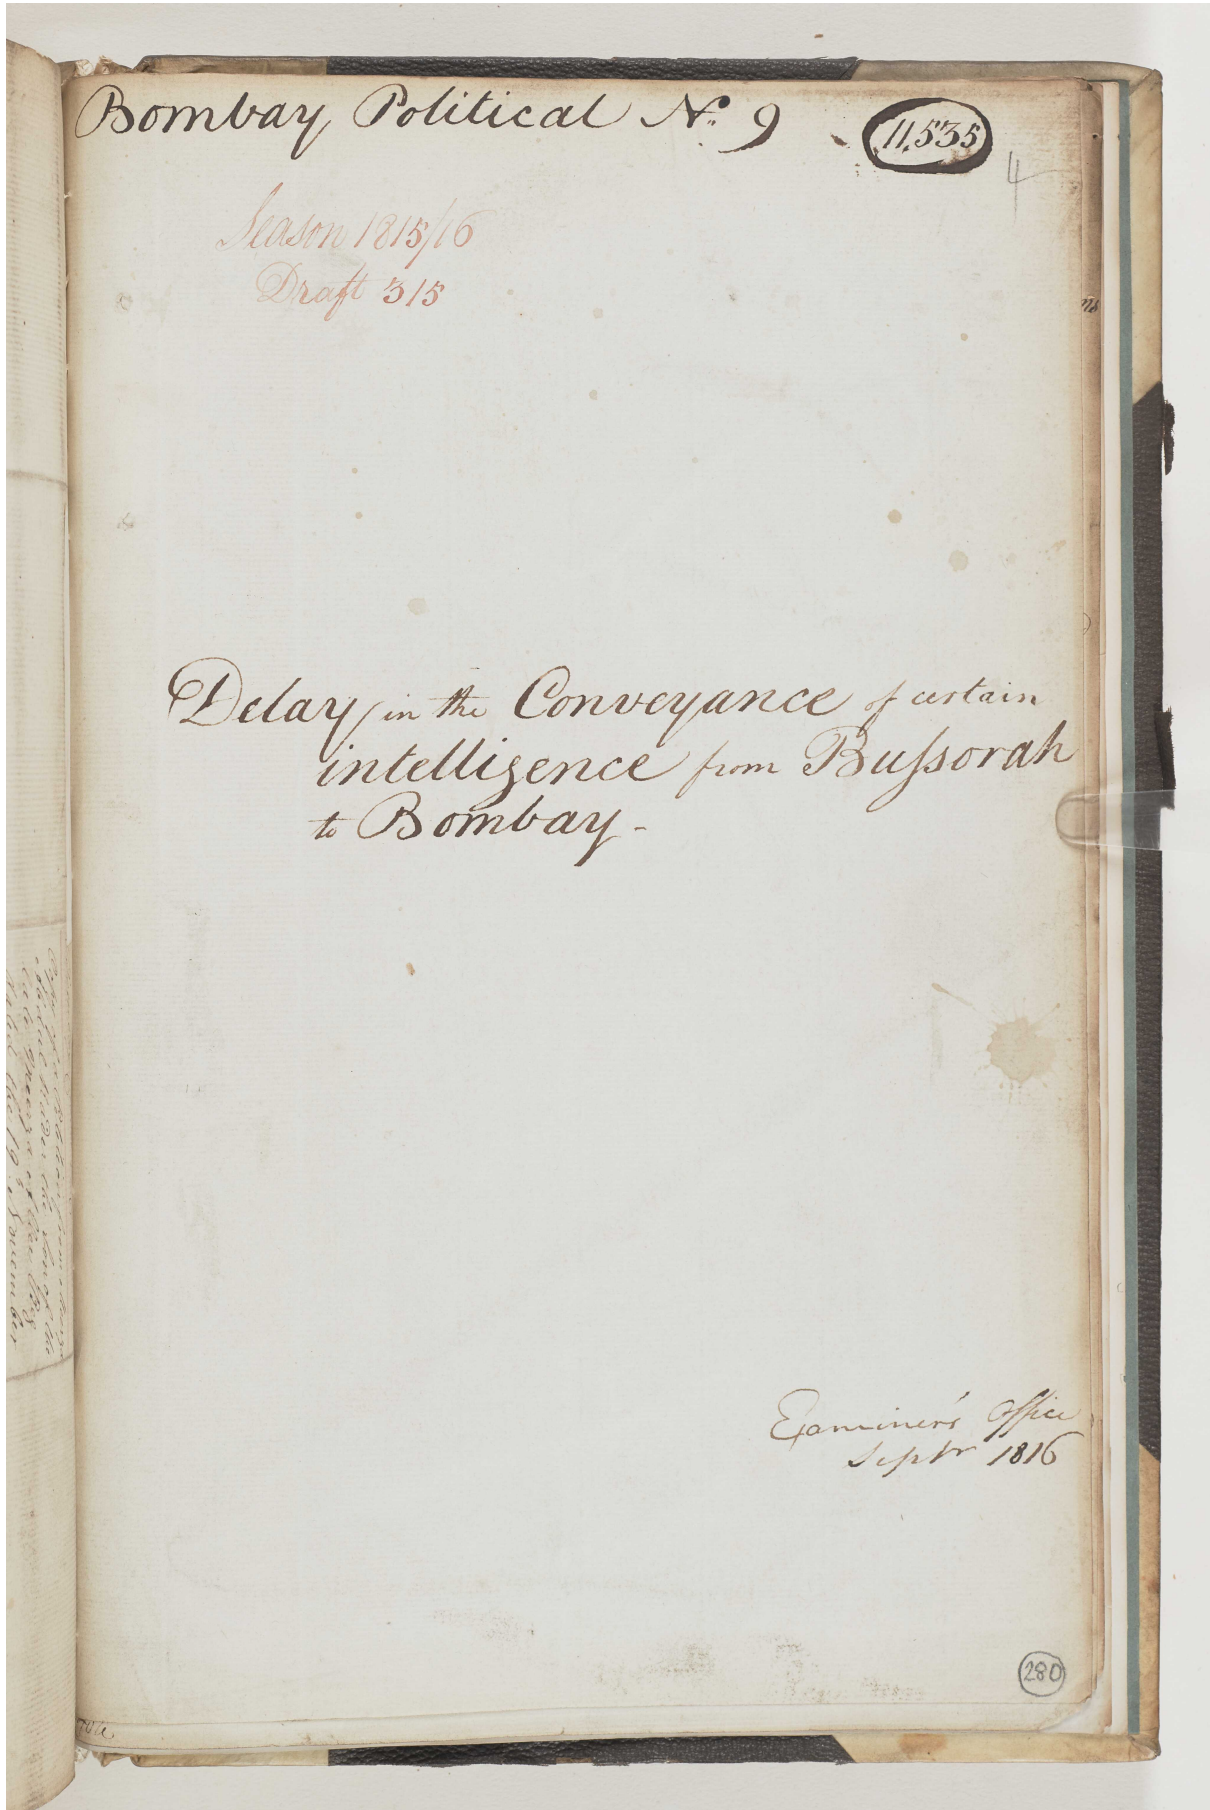 Bombay Political No. 9
11,535
4
Season 1815/16
Draft 315
Delay in the Conveyance of certain
intelligence from Bussorah
to Bombay -
Examiner's Office
Septr 1816
280